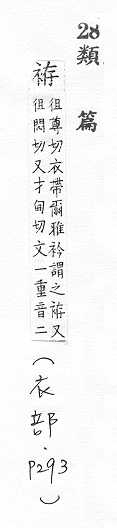 28 類篇
袸
徂尊切衣帶爾雅衿謂之袸又
徂悶切又才甸切文一重音二
(衣部.P293)